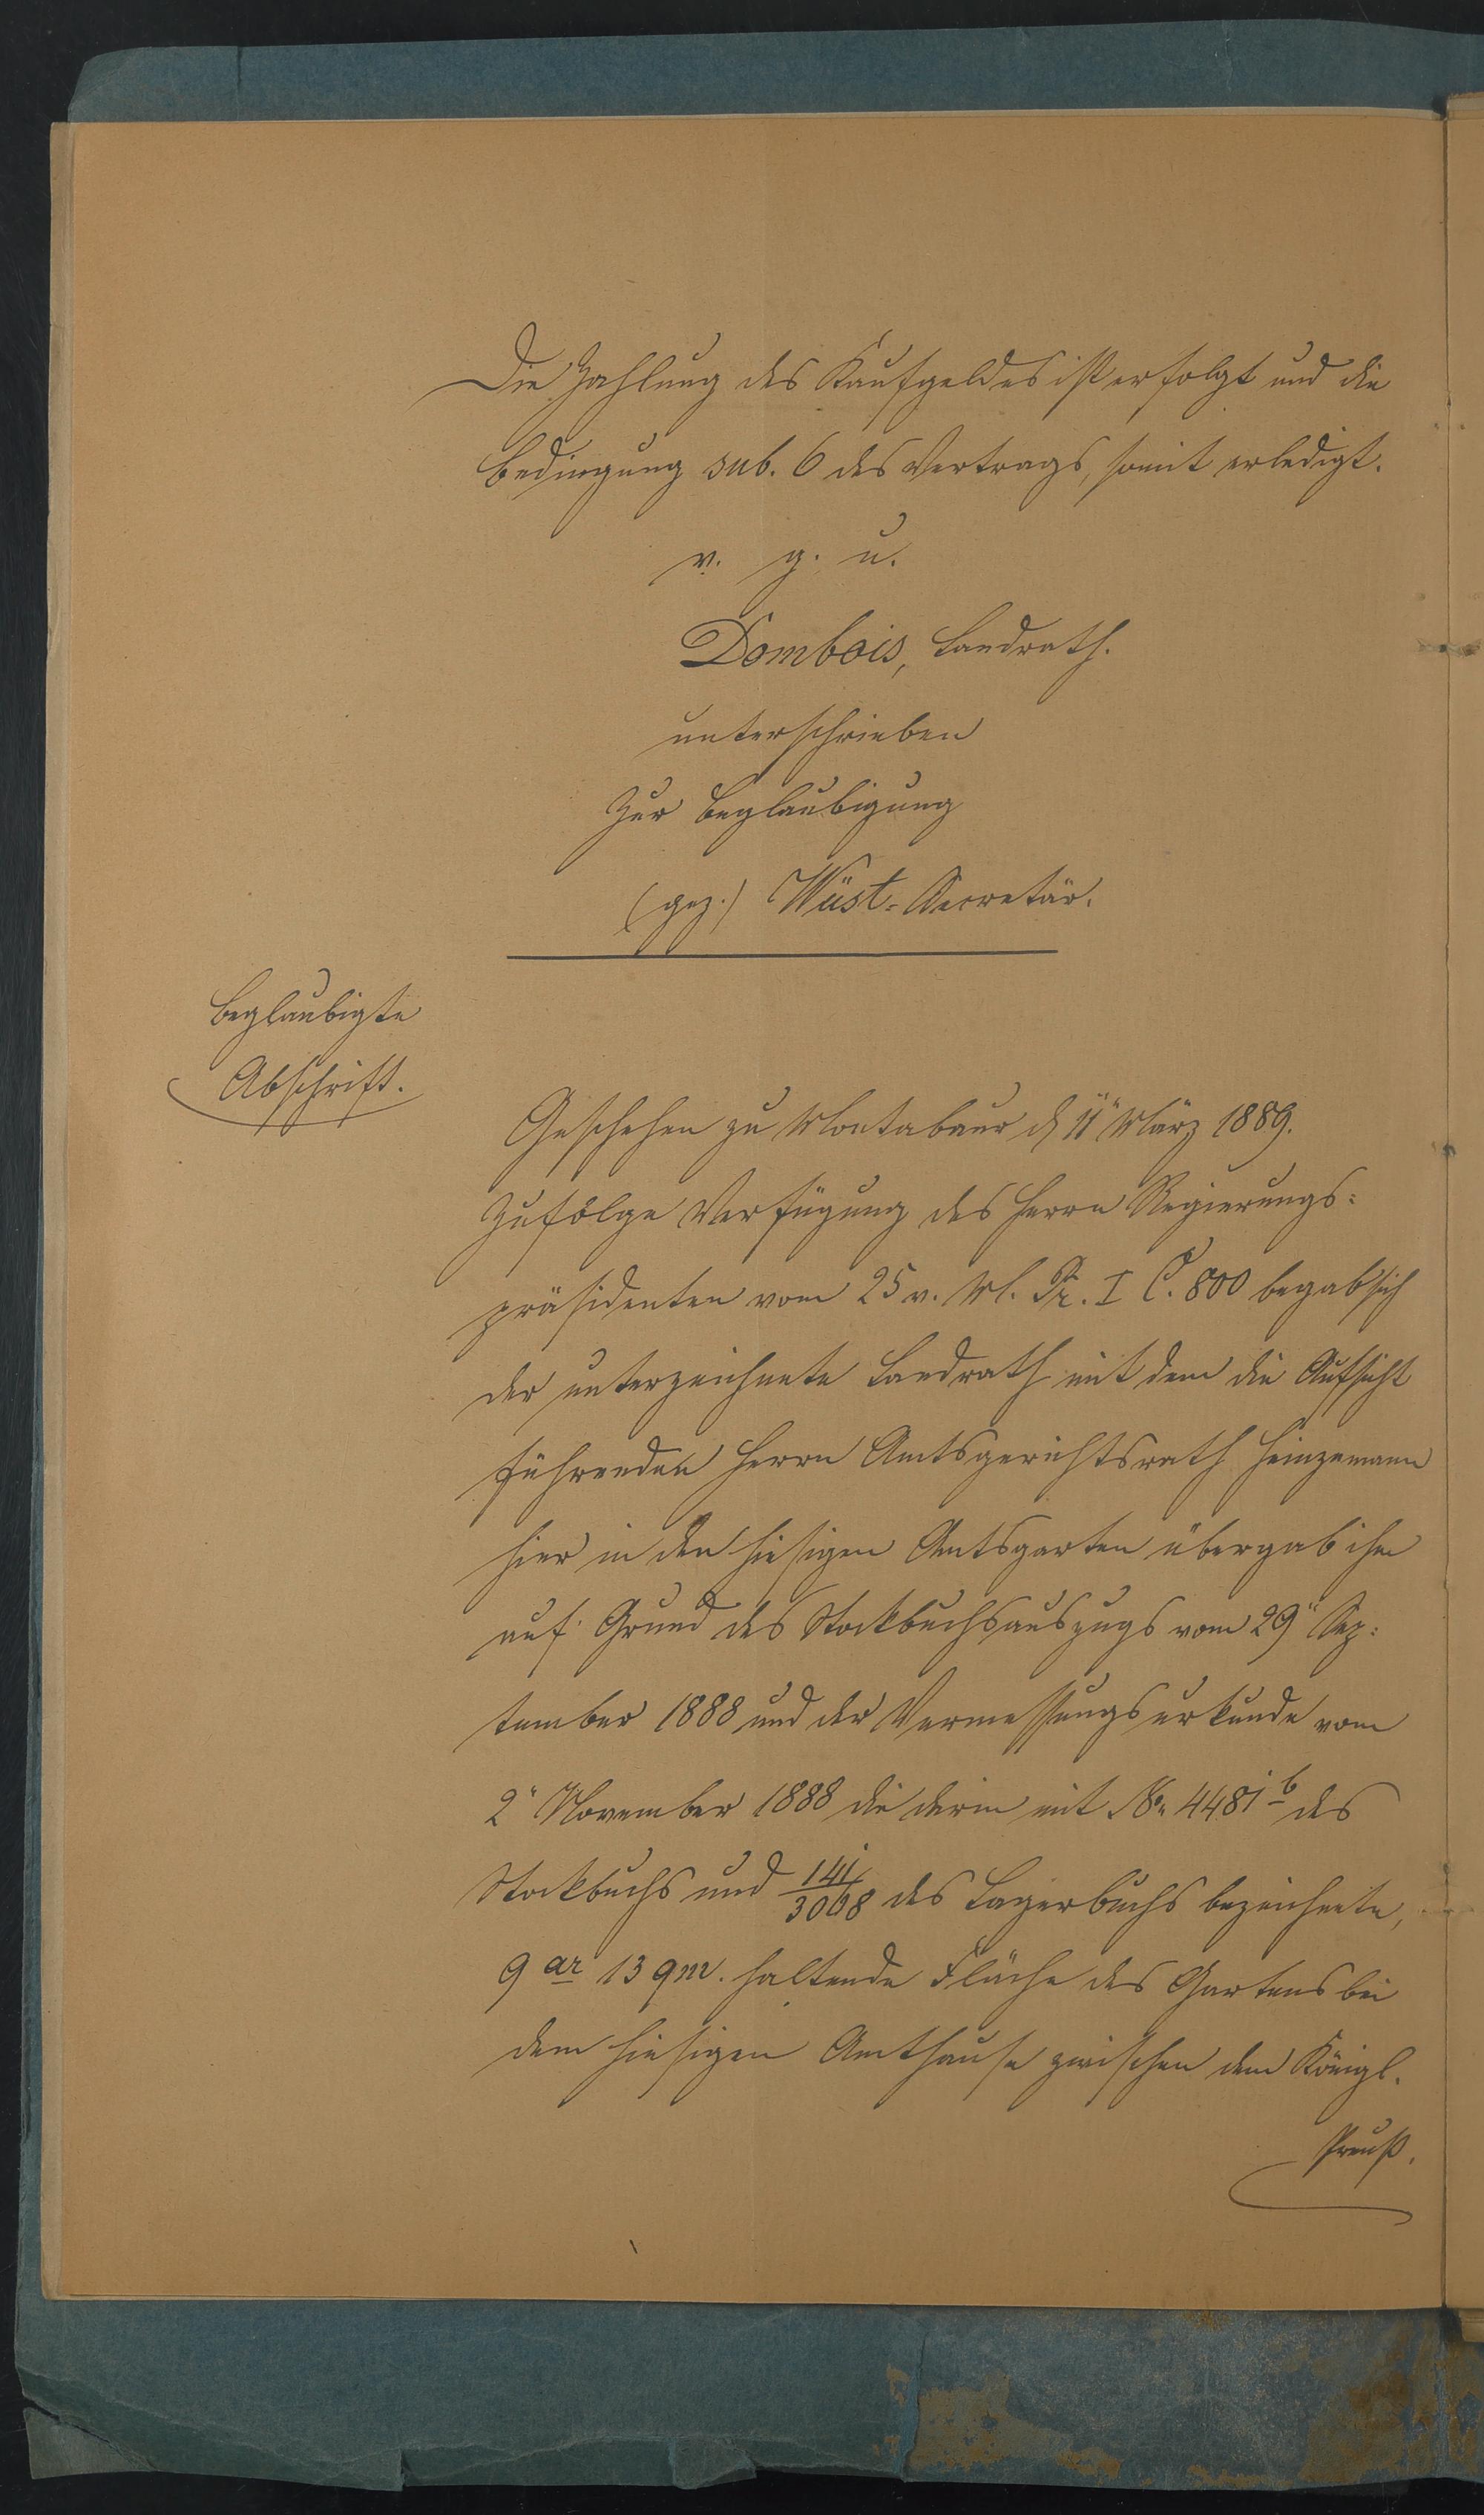 Die Zahlung des Kaufgeldes ist erfolgt und die
Bedingung sub. 6 des Vertrags, somit erledigt.
v. g. u.
Dombois, Landrath.
unterschrieben
Zur Beglaubigung
(gez.) Wüst-Secretär.
Beglaubigte
Abschrift.
Geschehen zu Montabaur d. 11" März 1889.
Zufolge Verfügung des Herrn Regierungs-
präsidenten vom 25 v. M. Pr. I C. 800 begab sich
der unterzeichnete Landrath mit dem die Aufsicht
führenden Herrn Amtsgerichtsrath Heinzemann
hier in den hiesigen Amtsgarten übergab ihm
auf Grund des Stockbuchsauszugs vom 29" Sep-
tember 1888 und der Vermessungsurkunde vom
2" November 1888 die darin mit No. 4481 b des
Stockbuchs und 141/3068 des Lagerbuchs bezeichnete,
9 ar 13 qm. haltende Fläche des Gartens bei
dem hiesigen Amthause zwischen dem Königl.
Preuß.